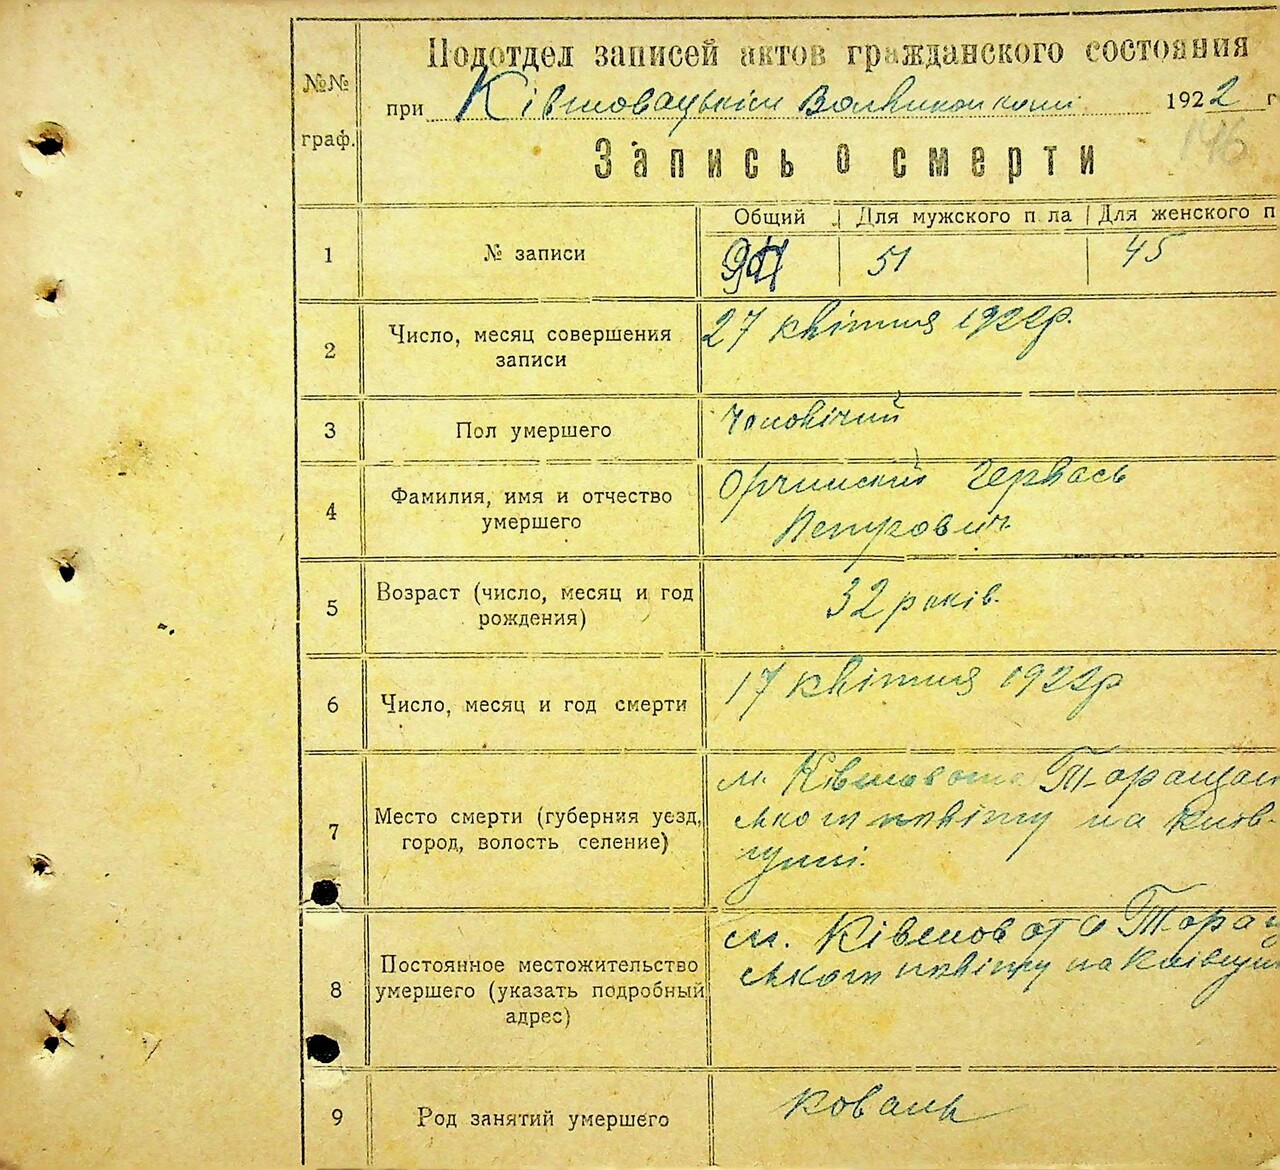 Подотдел записей актов гражданского состояния
№№
граф.
при Ківшовацькім 1922 г
146
Запись о смерти
Общий Для мужского п ла Для женского п
1 № записи 51 45
2 Число, месяц совершения
записи
27 квітня 1922р.
3 Пол умершего Чоловічий
4 Фамилия, имя и отчество
умершего
Орчинский Гервась
Петрович
5 Возраст (число, месяц и год
рождения)
32 років.
6 Число, месяц и год смерти 17 квітня 1922р
7 Место смерти (губерния уезд,
город, волость селение)
м. Ківшовата Таращан
ського повіту на Київ-
щині.
8 Постоянное местожительство
умершего (указать подробный
адрес)
м. Ківшовата Таращ
ського повіту на Київщин
9 Род занятий умершего коваль